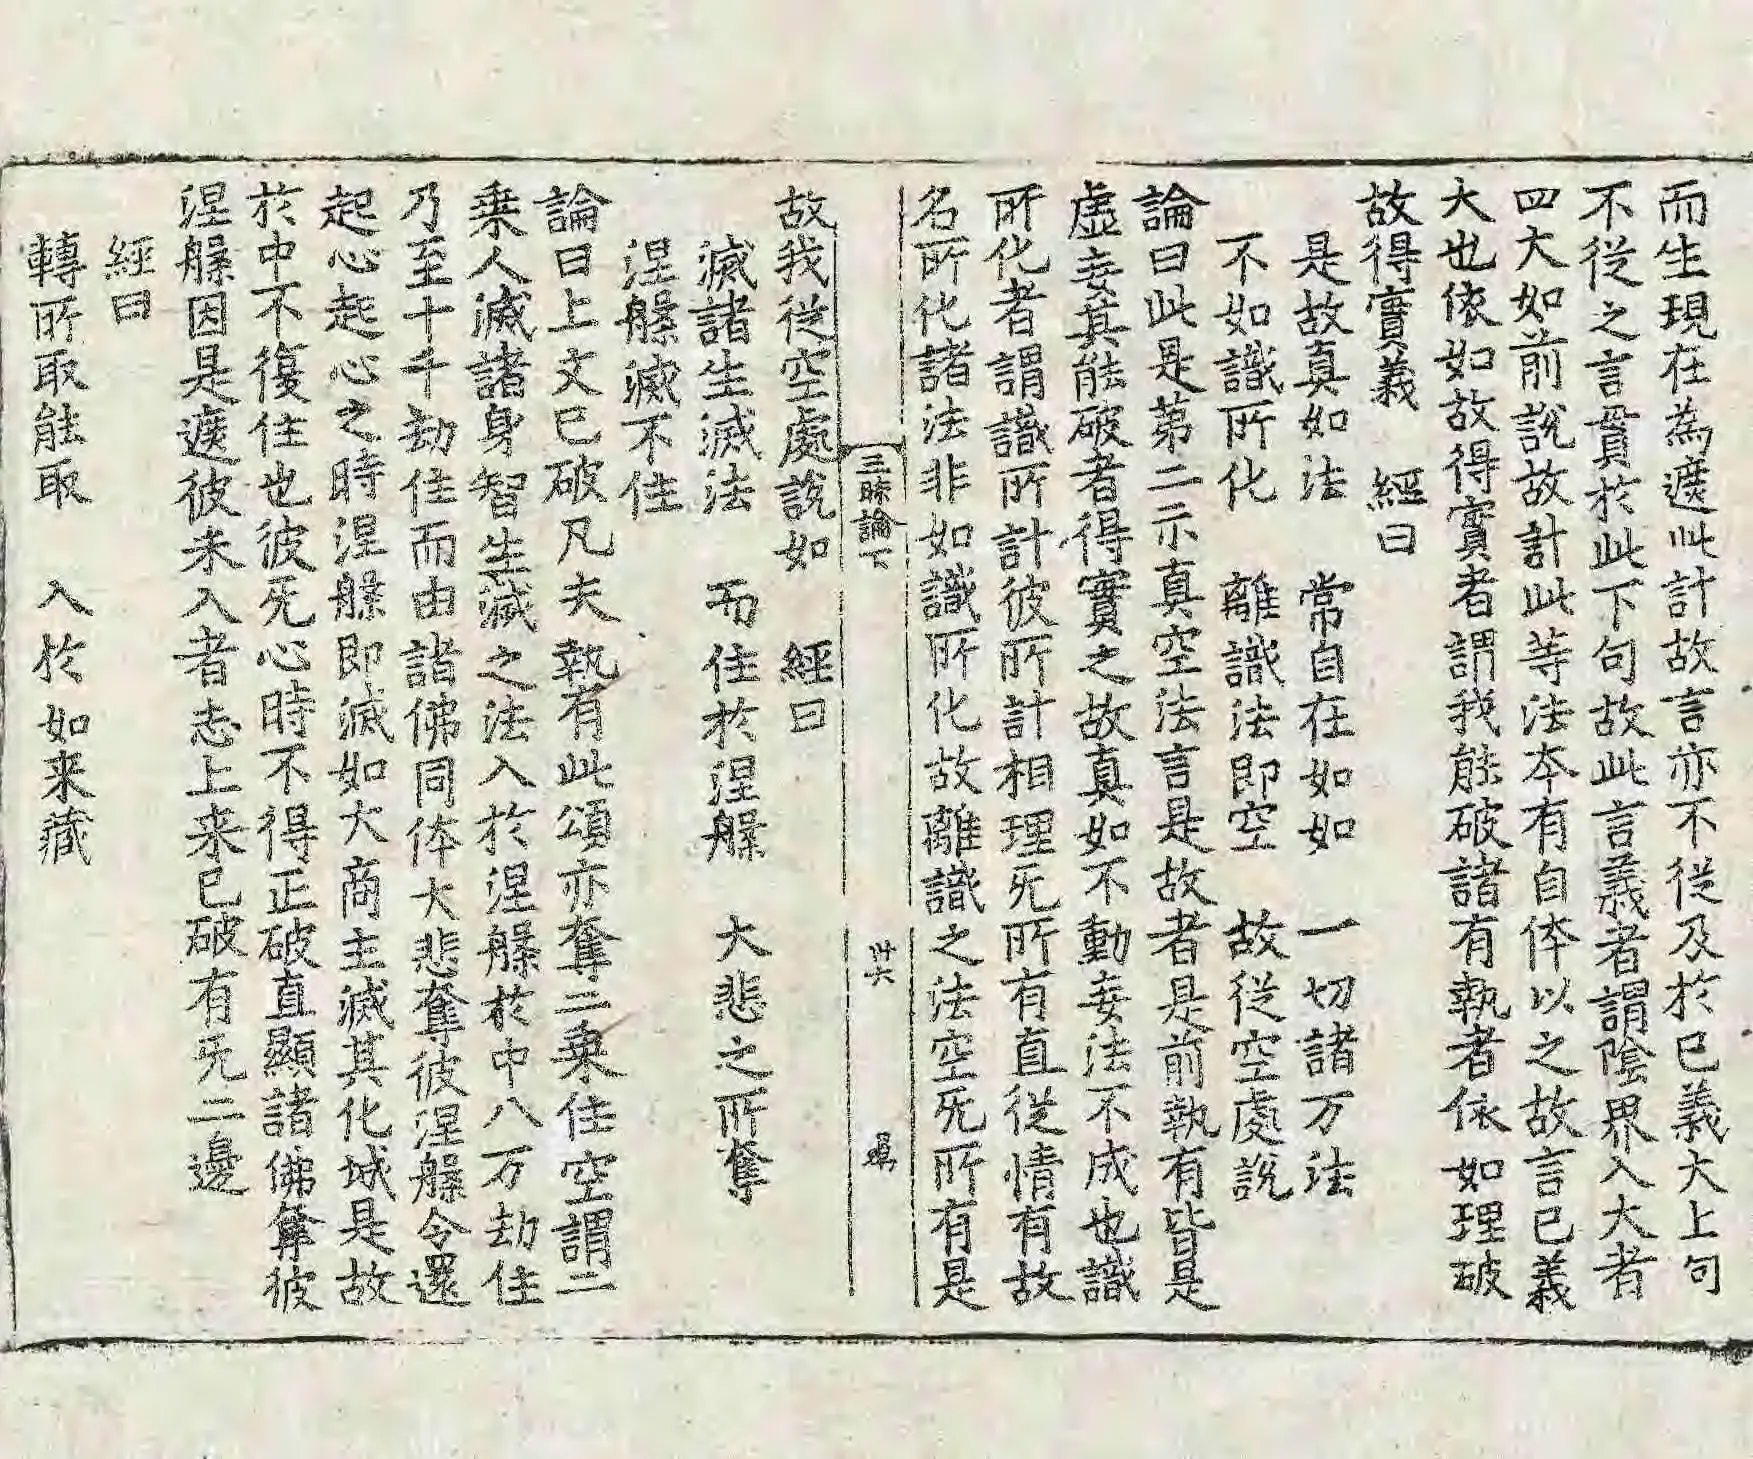 而生現在為遮此計故言亦不從及於已義大上句
不從之言貫於此下句故此言義者謂陰界入大者
四大如前說故計此等法本有自体以之故言已義
大也依如故得實者謂我能破諸有執者依如理破
故得實義　經曰
是故真如法　常自在如如　一切諸万法
不如識所化　離識法即空　故從空處說
論曰此是第二示真空法言是故者是前執有皆是
虛妄真能破者得實之故真如不動妄法不成也識
所化者謂識所計彼所計相理无所有直從情有故
名所化諸法非如識所化故離識之法空无所有是
三昧論下　卅六
故我從空處說如　經曰
滅諸生滅法　而住於涅槃　大悲之所奪
涅槃滅不住
論曰上文已破凡夫執有此頌亦奪二乗住空謂二
乗人滅諸身智生滅之法入於涅槃於中八万劫住
乃至十千劫住而由諸佛同体大悲奪彼涅槃令還
起心起心之時涅槃即滅如大商主滅其化城是故
於中不復住也彼死心時不得正破直顯諸佛奪彼
涅槃因是遮彼未入者志上来已破有无二邊
經曰
轉所取能取　入於如来藏